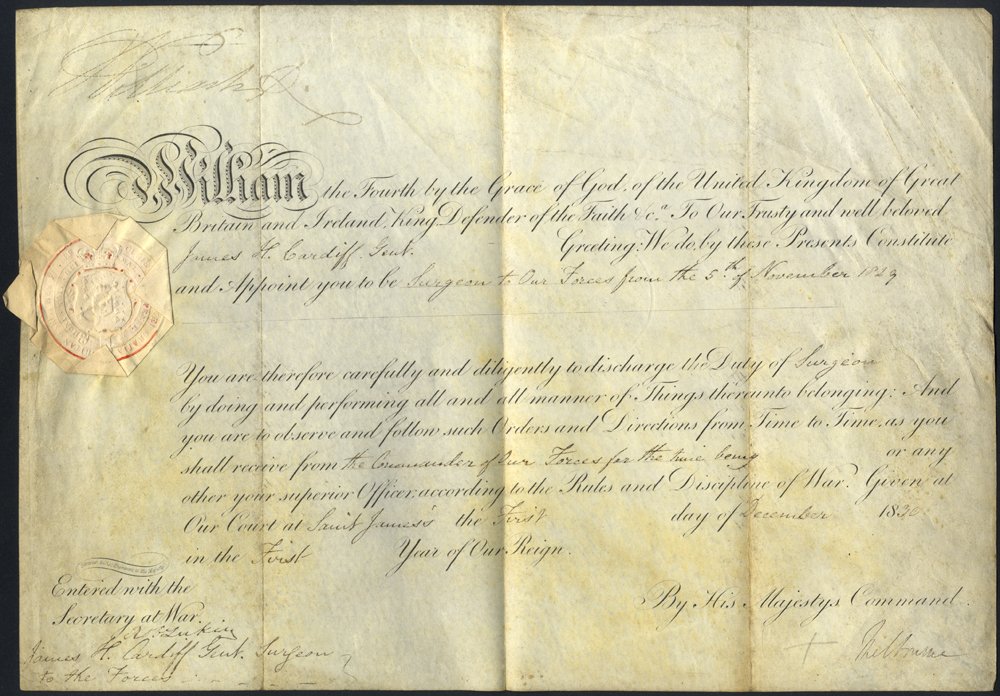 William R
William the Fourth by the Grace of God, of the United Kingdom of Great
Britain and Ireland, King, Defender of the Faith &c.a To Our Trusty and well beloved
James H. Cardiff Gent. Greeting: We do, by these Presents Constitute
and Appoint you to be Surgeon to Our Forces from the 5th of November 1829
You are therefore carefully and diligently to discharge the Duty of Surgeon
by doing and performing all and all manner of Things thereunto belonging; And
you are to observe and follow such Orders and Directions from Time to Time, as you
shall receive from the Commander of Our Forces for the time being or any
other your superior Officer, according to the Rules and Discipline of War. Given at
Our Court at Saint James's the First day of December 1830
in the First Year of Our Reign.
Entered with the
Secretary at War.
By His Majestys Command.
Lukin
Melbourne
James H. Cardiff Gent. Surgeon
to the Forces